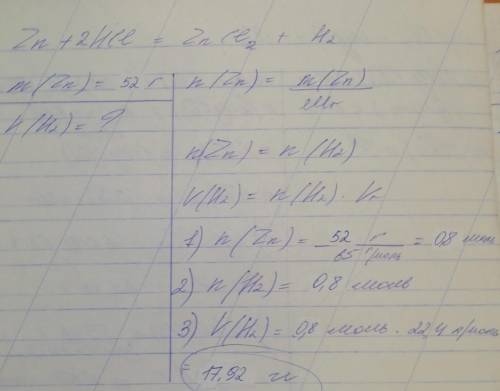 Zn + 2HCl = ZnCl₂ + H₂
m(Zn) = 52 г
V(H₂) = ?
n(Zn) = m(Zn) / Mr
n(Zn) = n(H₂)
V(H₂) = n(H₂) · Vm
1) n(Zn) = 52 г / 65 г/моль = 0,8 моль
2) n(H₂) = 0,8 моль
3) V(H₂) = 0,8 моль · 22,4 л/моль
= 17,92 л